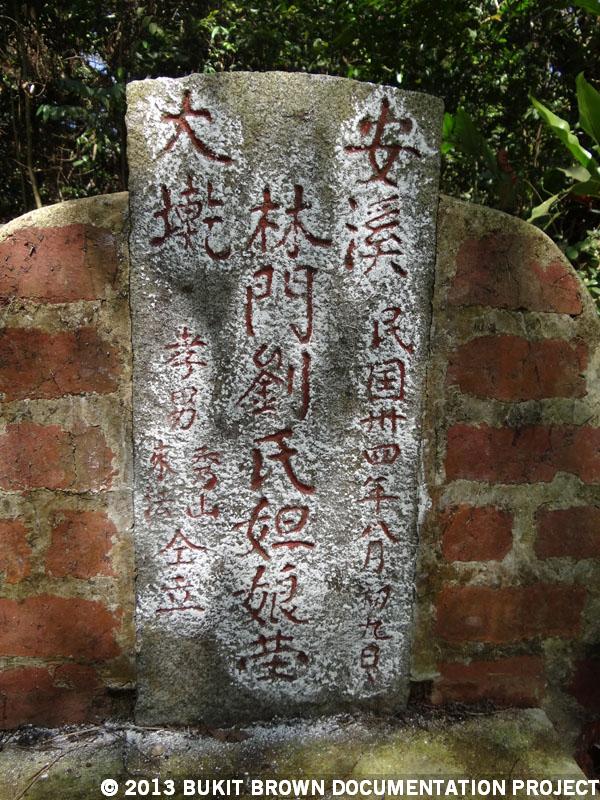 安溪
民国卅四年八月初九日
林門劉氏妲娘茔
大墘
孝男
秀山
仝立
© 2013 BUKIT BROWN DOCUMENTATION PROJECT